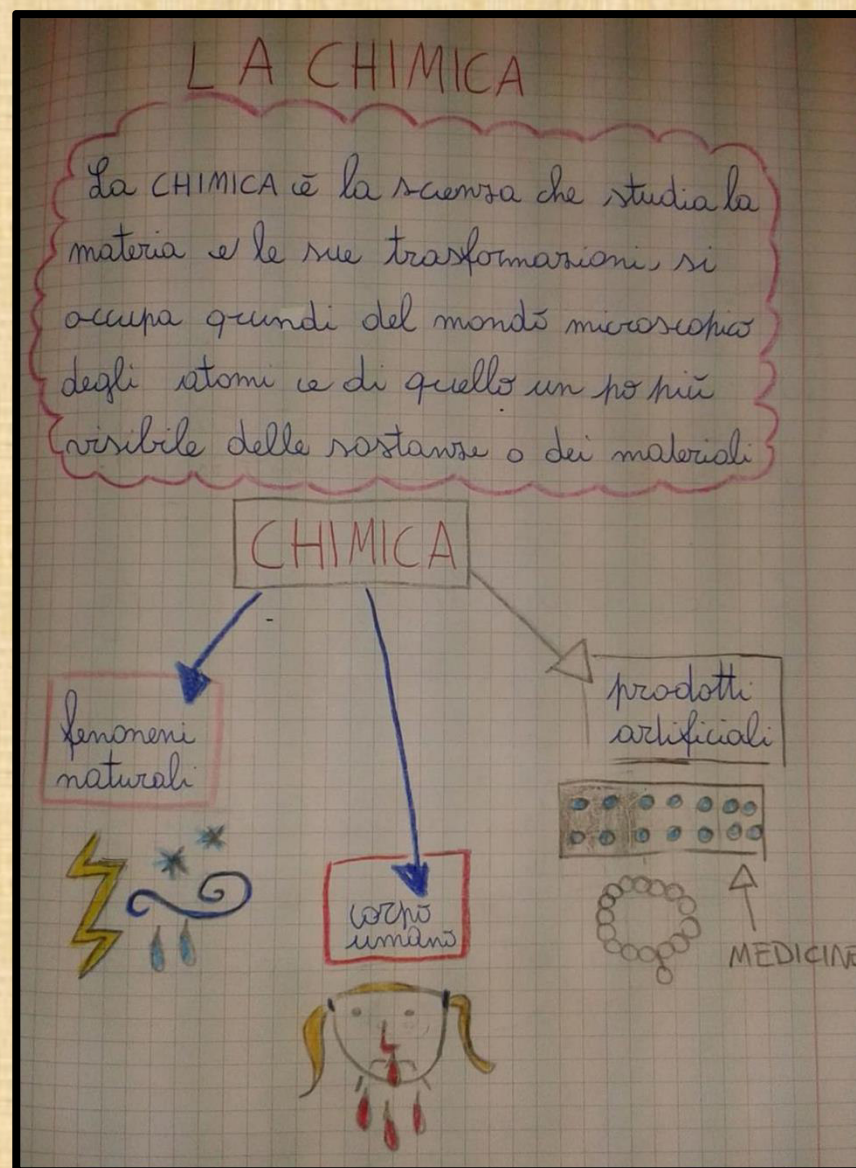 LA CHIMICA
La CHIMICA è la scienza che studia la
materia e le sue trasformazioni, si
occupa quindi del mondo microscopico
degli atomi e di quello un po più
visibile delle sostanze o dei materiali
CHIMICA
fenomeni
naturali
corpo
umano
prodotti
artificiali
MEDICINE